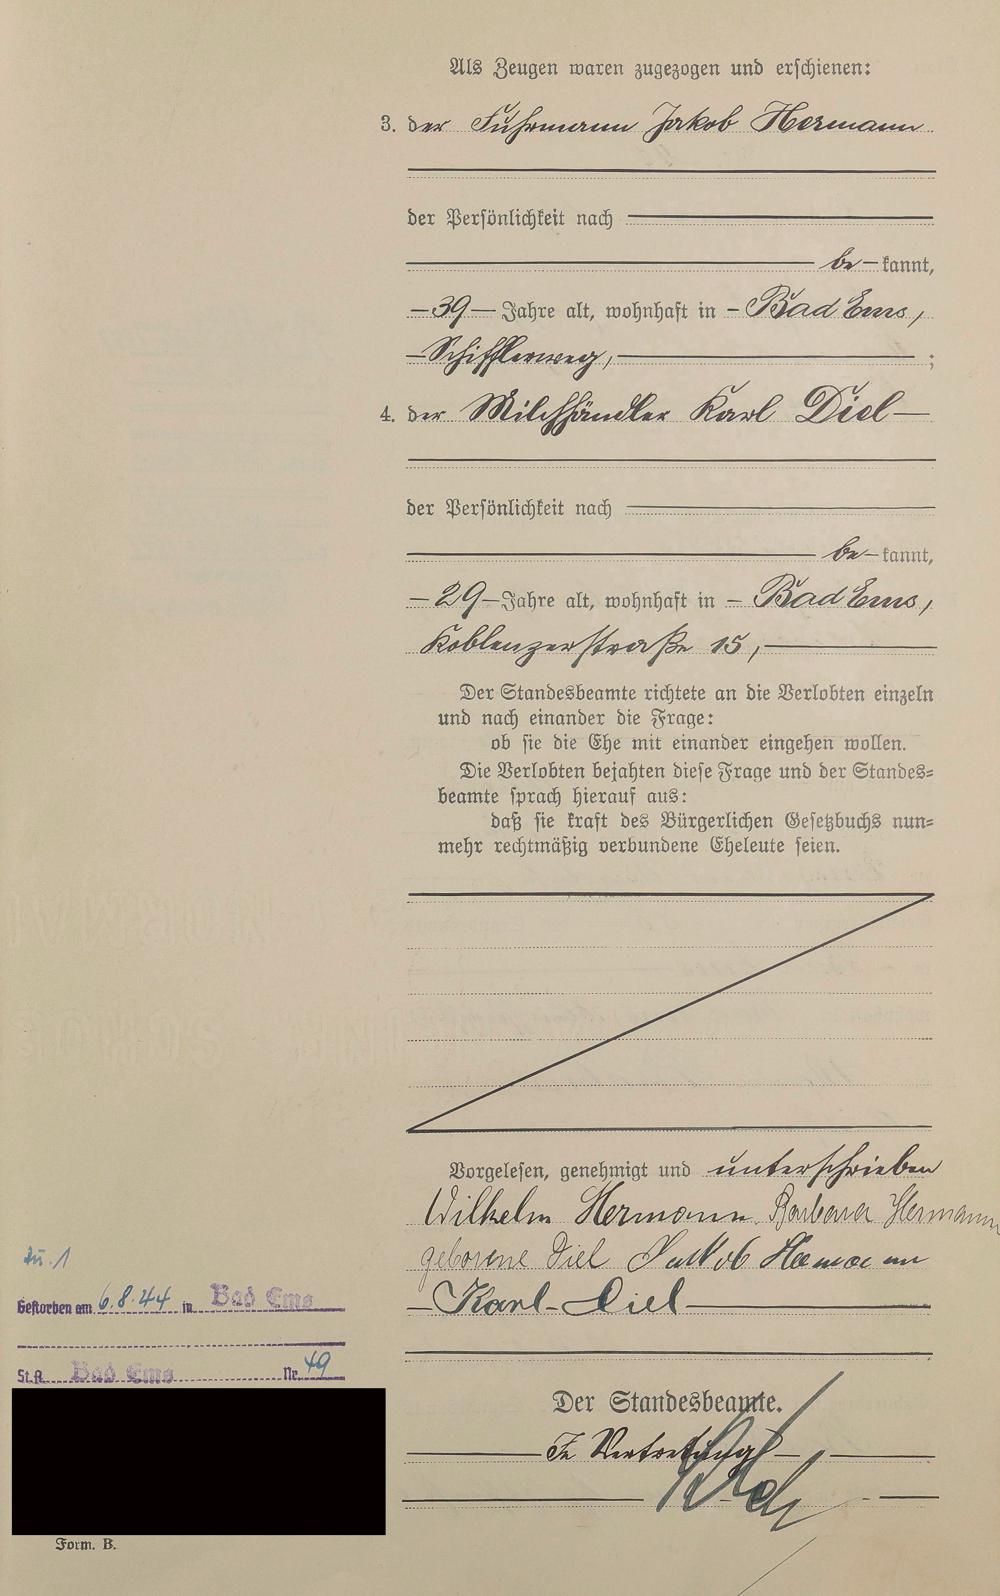 Als Zeugen waren zugezogen und erschienen:
3. der Fuhrmann Jakob Hermann
der Persönlichkeit nach
be- kannt,
-39- Jahre alt, wohnhaft in - Bad Ems,
-Schifflerweg, ;
4. der Milchhändler Karl Diel-
der Persönlichkeit nach
be- kannt,
-29- Jahre alt, wohnhaft in - Bad Ems,
Koblenzerstraße 15,
Der Standesbeamte richtete an die Verlobten einzeln
und nach einander die Frage:
ob sie die Ehe mit einander eingehen wollen.
Die Verlobten bejahten diese Frage und der Standes=
beamte sprach hierauf aus:
daß sie kraft des Bürgerlichen Gesetzbuchs nun=
mehr rechtmäßig verbundene Eheleute seien.
Vorgelesen, genehmigt und unterschrieben
Wilhelm Hermann Barbara Hermann
geborene Diel Jakob Hermann
-Karl Diel-
Der Standesbeamte.
In Vertretung
Zu. 1
Gestorben am 6.8.44 in Bad Ems
St.A. Bad Ems Nr. 49
Form. B.